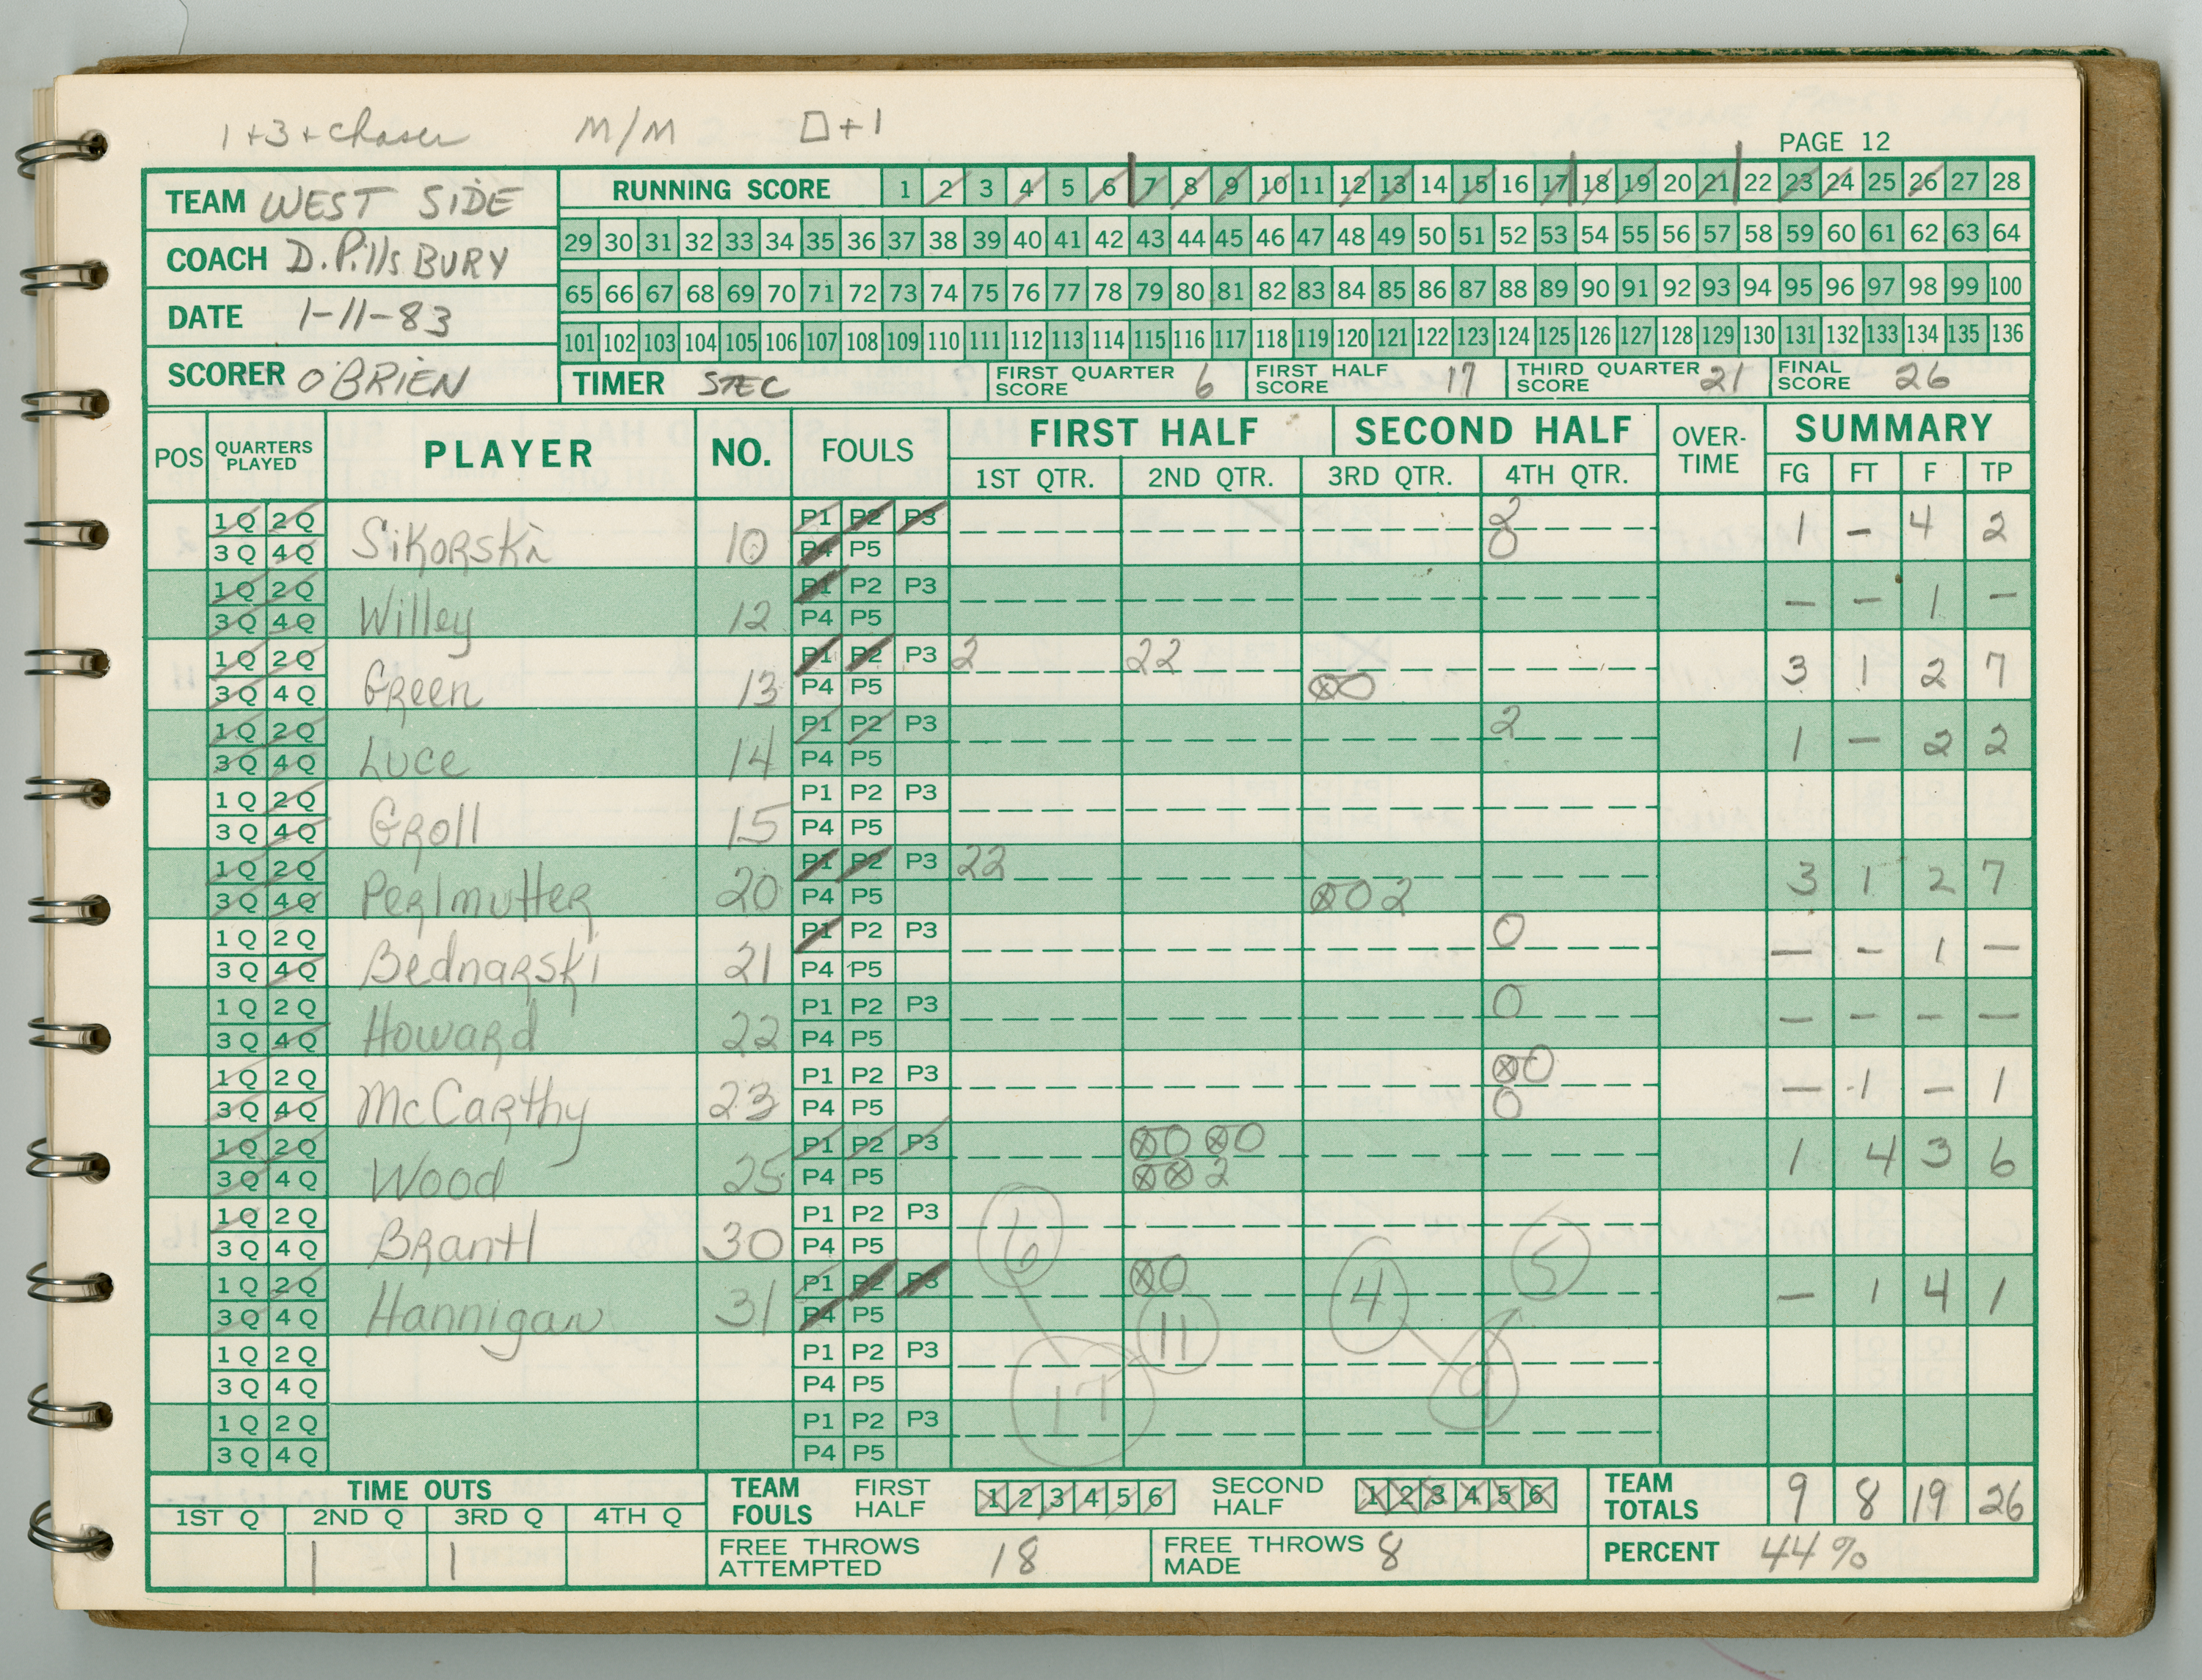 1+3+chaser M/M □+1
PAGE 12
TEAM WEST SIDE
COACH D. PillsBURY
DATE 1-11-83
SCORER O'BRIEN
RUNNING SCORE 1 2 3 4 5 6 7 8 9 10 11 12 13 14 15 16 17 18 19 20 21 22 23 24 25 26 27 28
29 30 31 32 33 34 35 36 37 38 39 40 41 42 43 44 45 46 47 48 49 50 51 52 53 54 55 56 57 58 59 60 61 62 63 64
65 66 67 68 69 70 71 72 73 74 75 76 77 78 79 80 81 82 83 84 85 86 87 88 89 90 91 92 93 94 95 96 97 98 99 100
101 102 103 104 105 106 107 108 109 110 111 112 113 114 115 116 117 118 119 120 121 122 123 124 125 126 127 128 129 130 131 132 133 134 135 136
TIMER STEC FIRST QUARTER SCORE 6 FIRST HALF SCORE 17 THIRD QUARTER SCORE 21 FINAL SCORE 26
POS QUARTERS PLAYED PLAYER NO. FOULS FIRST HALF SECOND HALF OVER-TIME SUMMARY
1ST QTR. 2ND QTR. 3RD QTR. 4TH QTR. FG FT F TP
1Q 2Q P1 P2 P3 2
3Q 4Q Sikorski 10 P4 P5 0 1 - 4 2
1Q 2Q P1 P2 P3
3Q 4Q Willey 12 P4 P5 - - 1 -
1Q 2Q P1 P2 P3 2 22
3Q 4Q Green 13 P4 P5 ⓧ0 3 1 2 7
1Q 2Q P1 P2 P3 2
3Q 4Q Luce 14 P4 P5 1 - 2 2
1Q 2Q P1 P2 P3
3Q 4Q Groll 15 P4 P5
1Q 2Q P1 P2 P3 22
3Q 4Q Perlmutter 20 P4 P5 ⓧ0 2 3 1 2 7
1Q 2Q P1 P2 P3 0
3Q 4Q Bednarski 21 P4 P5 - - 1 -
1Q 2Q P1 P2 P3 0
3Q 4Q Howard 22 P4 P5 - - - -
1Q 2Q P1 P2 P3 ⓧ0
3Q 4Q McCarthy 23 P4 P5 0 - 1 - 1
1Q 2Q P1 P2 P3 ⓧ0 ⓧ0
3Q 4Q Wood 25 P4 P5 ⓧⓧ 2 1 4 3 6
1Q 2Q P1 P2 P3
3Q 4Q Brantl 30 P4 P5 6 5
1Q 2Q P1 P2 P3 ⓧ0
3Q 4Q Hannigan 31 P4 P5 11 4 - 1 4 1
1Q 2Q P1 P2 P3
3Q 4Q P4 P5 17 9
1Q 2Q P1 P2 P3
3Q 4Q P4 P5
TIME OUTS TEAM FOULS FIRST HALF 1 2 3 4 5 6 SECOND HALF 1 2 3 4 5 6 TEAM TOTALS 9 8 19 26
1ST Q 2ND Q 3RD Q 4TH Q
1 1 FREE THROWS ATTEMPTED 18 FREE THROWS MADE 8 PERCENT 44%